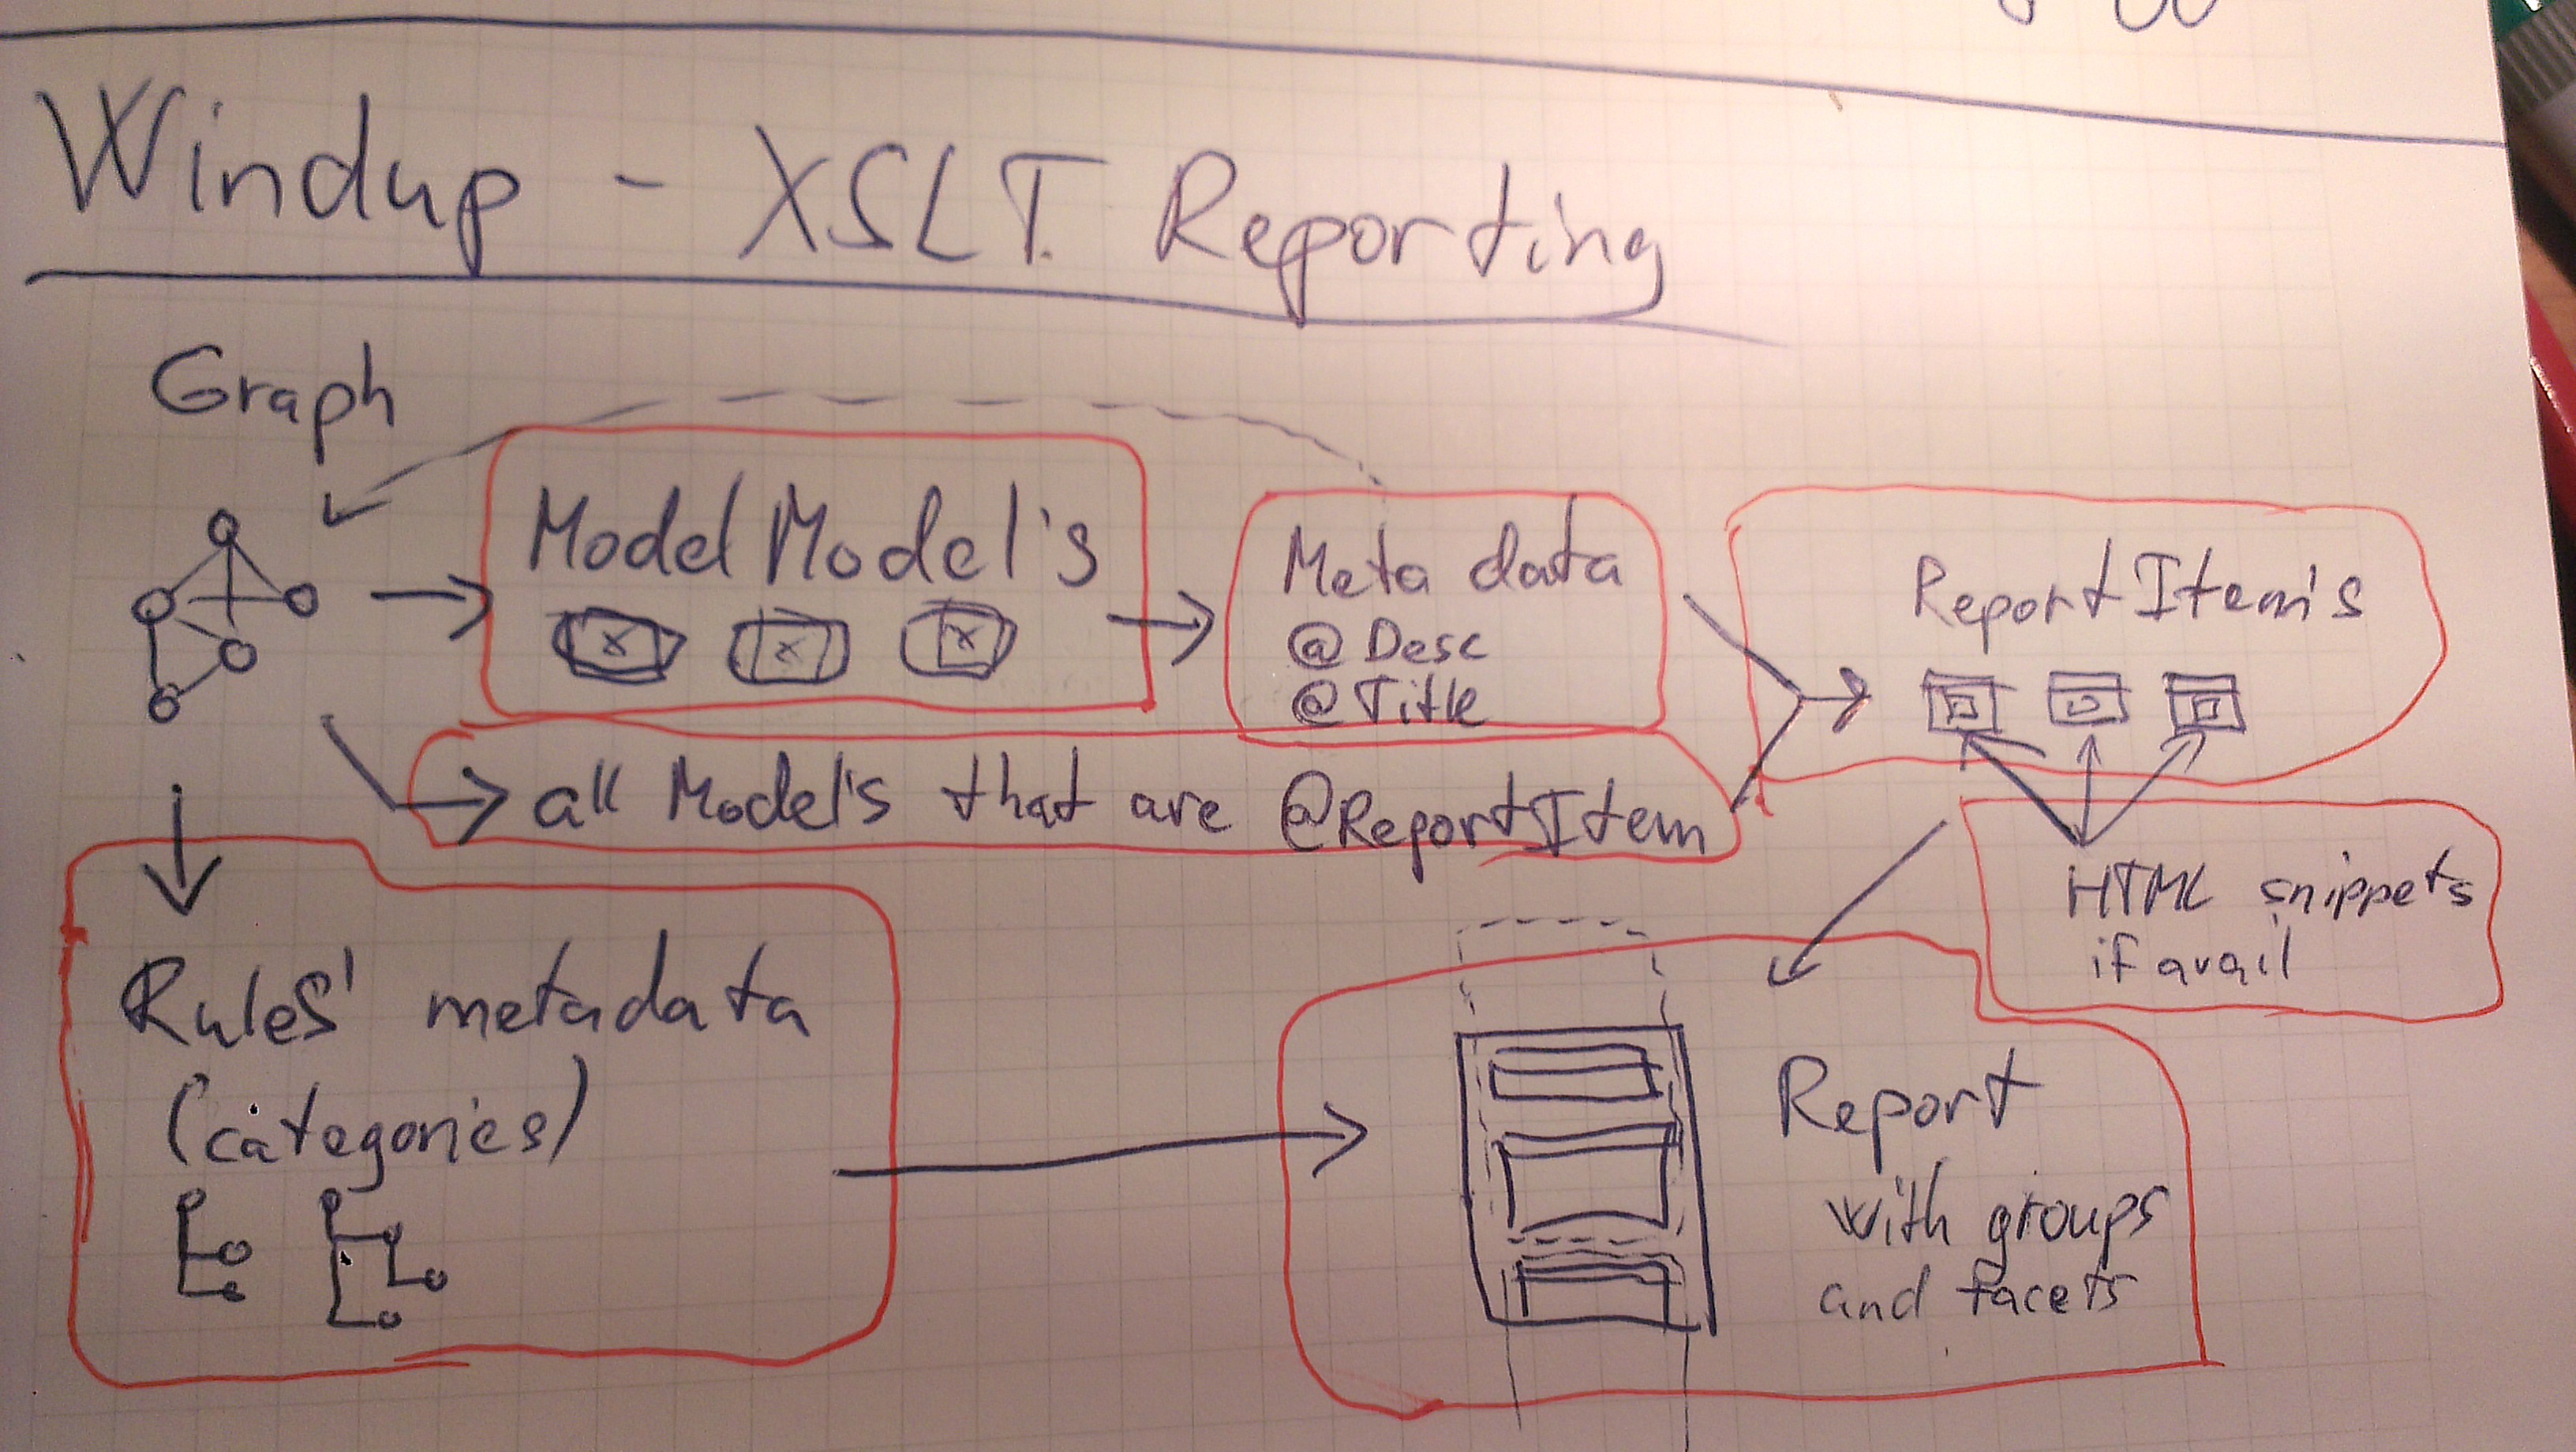 Windup - XSLT Reporting
Graph
Model Model's
Meta data
@Desc
@Title
ReportItem's
all Model's that are @ReportItem
HTML snippets
if avail
Rules' metadata
(categories)
Report
with groups
and facets